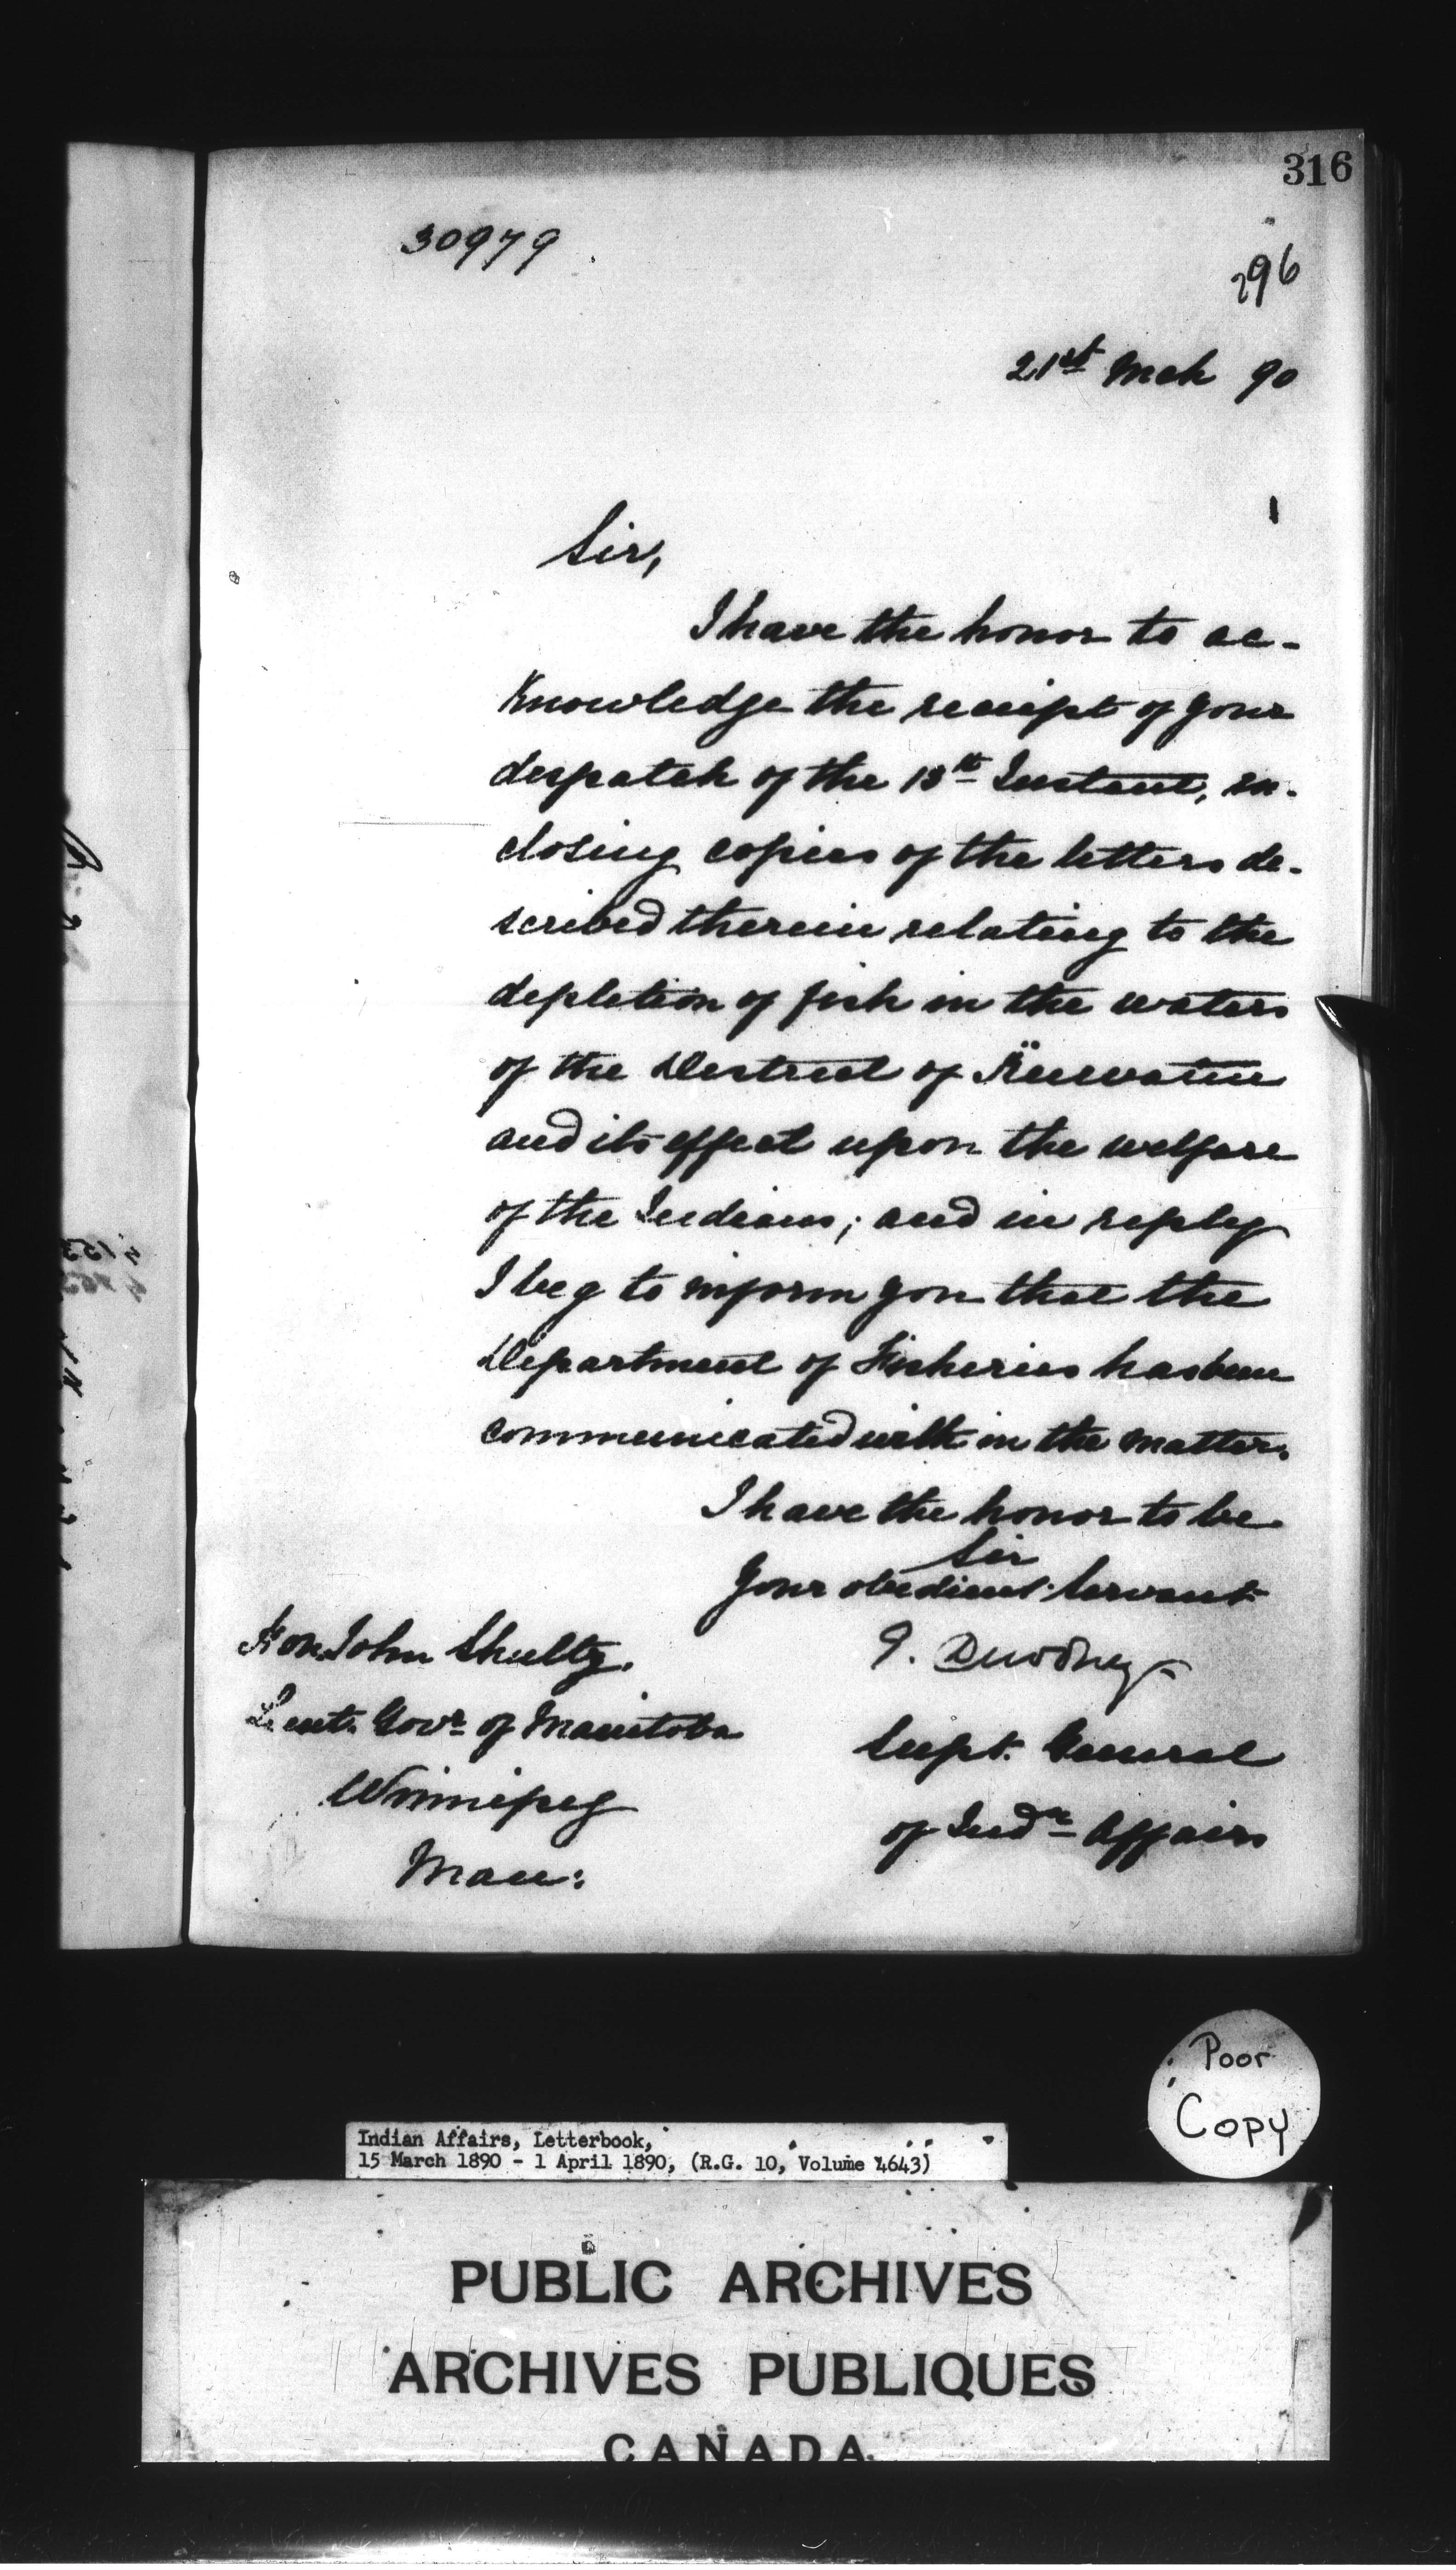 316
30979
296
21st Mch 90
Sir,
I have the honor to ac-
knowledge the receipt of your
despatch of the 13th Instant, en-
closing copies of the letters de-
scribed therein relating to the
depletion of fish in the waters
of the District of Keewatin
and its effect upon the welfare
of the Indians; and in reply
I beg to inform you that the
Department of Fisheries has been
communicated with in the matter.
I have the honor to be
Sir
Your obedient Servant
E. Dewdney
Supt. General
of Indn Affairs
Hon. John Shultz.
Lieut. Govr of Manitoba
Winnipeg
Man:
Poor
Copy
Indian Affairs, Letterbook,
15 March 1890 - 1 April 1890, (R.G. 10, Volume 4643)
PUBLIC ARCHIVES
ARCHIVES PUBLIQUES
CANADA